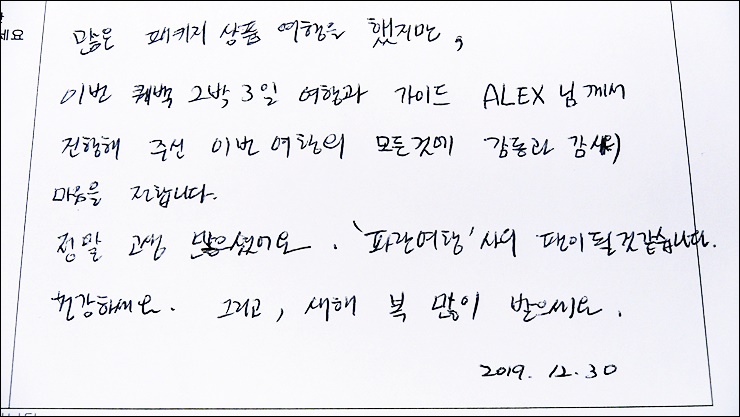 세요
많은 패키지 상품 여행을 했지만,
이번 퀘백 2박 3일 여행과 가이드 ALEX 님께서
진행해 주신 이번 여행의 모든것에 감동과 감사의
마음을 전합니다.
정말 고생 많으셨어요. '파란여행'사의 팬이 될것같습니다.
건강하세요. 그리고, 새해 복 많이 받으세요.
2019. 12. 30